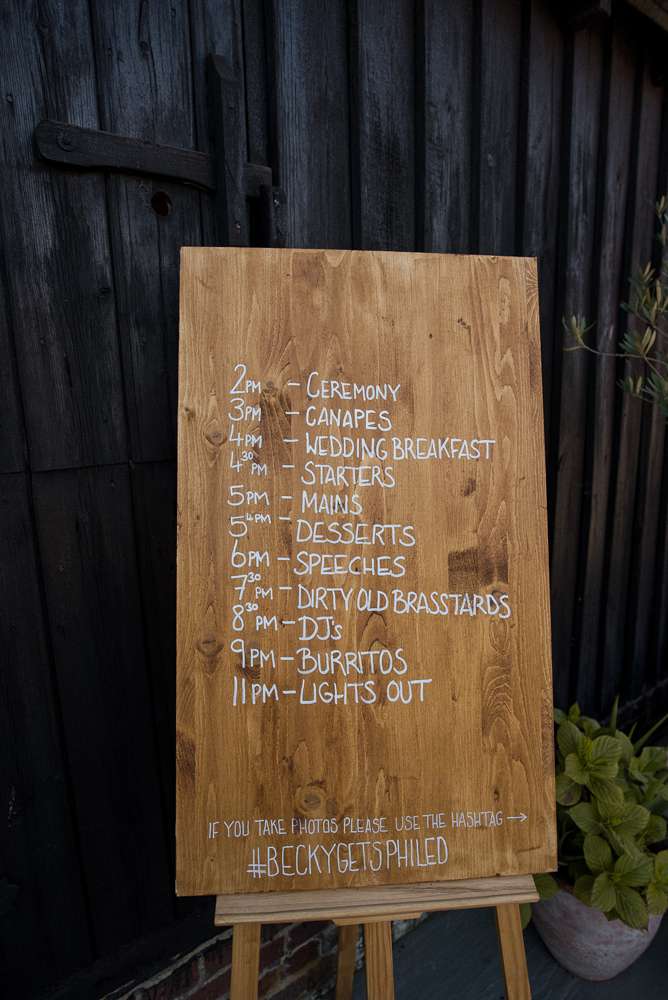 2PM – CEREMONY
3PM – CANAPES
4PM – WEDDING BREAKFAST
4³⁰PM – STARTERS
5PM – MAINS
5⁴PM – DESSERTS
6PM – SPEECHES
7³⁰PM – DIRTY OLD BRASSTARDS
8³⁰PM – DJ's
9PM – BURRITOS
11PM – LIGHTS OUT
IF YOU TAKE PHOTOS PLEASE USE THE HASHTAG →
#BECKYGETSPHILED